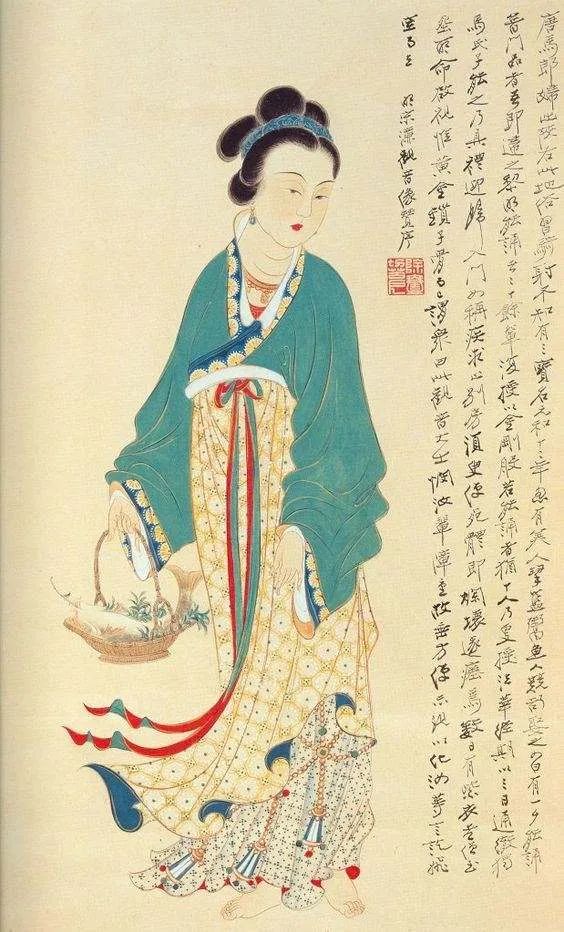 唐馬郎婦出陝右此地俗習騎射不知有三寶名元和十二年忽有美人挈籃鬻魚人競欲娶之曰有一夕能誦
普門品者吾即適之黎明能誦者二十餘輩復授以金剛般若能誦者猶十人乃更授法華經期以三日通徹獨
馬氏子能之乃具禮迎歸入門即稱疾求止別房須臾便死體即爛壞遂瘞焉數日有紫衣老僧至
葬所命啟視惟黃金鎖子骨而已謂眾曰此觀音大士憫汝輩障重故垂方便示現以化汝等言訖飛
空而去 明宋濂觀音像贊序